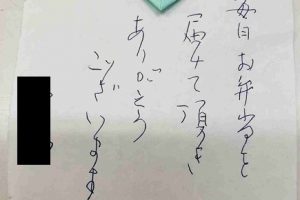 毎日お弁当を
届けて頂き
ありがとう
ございます